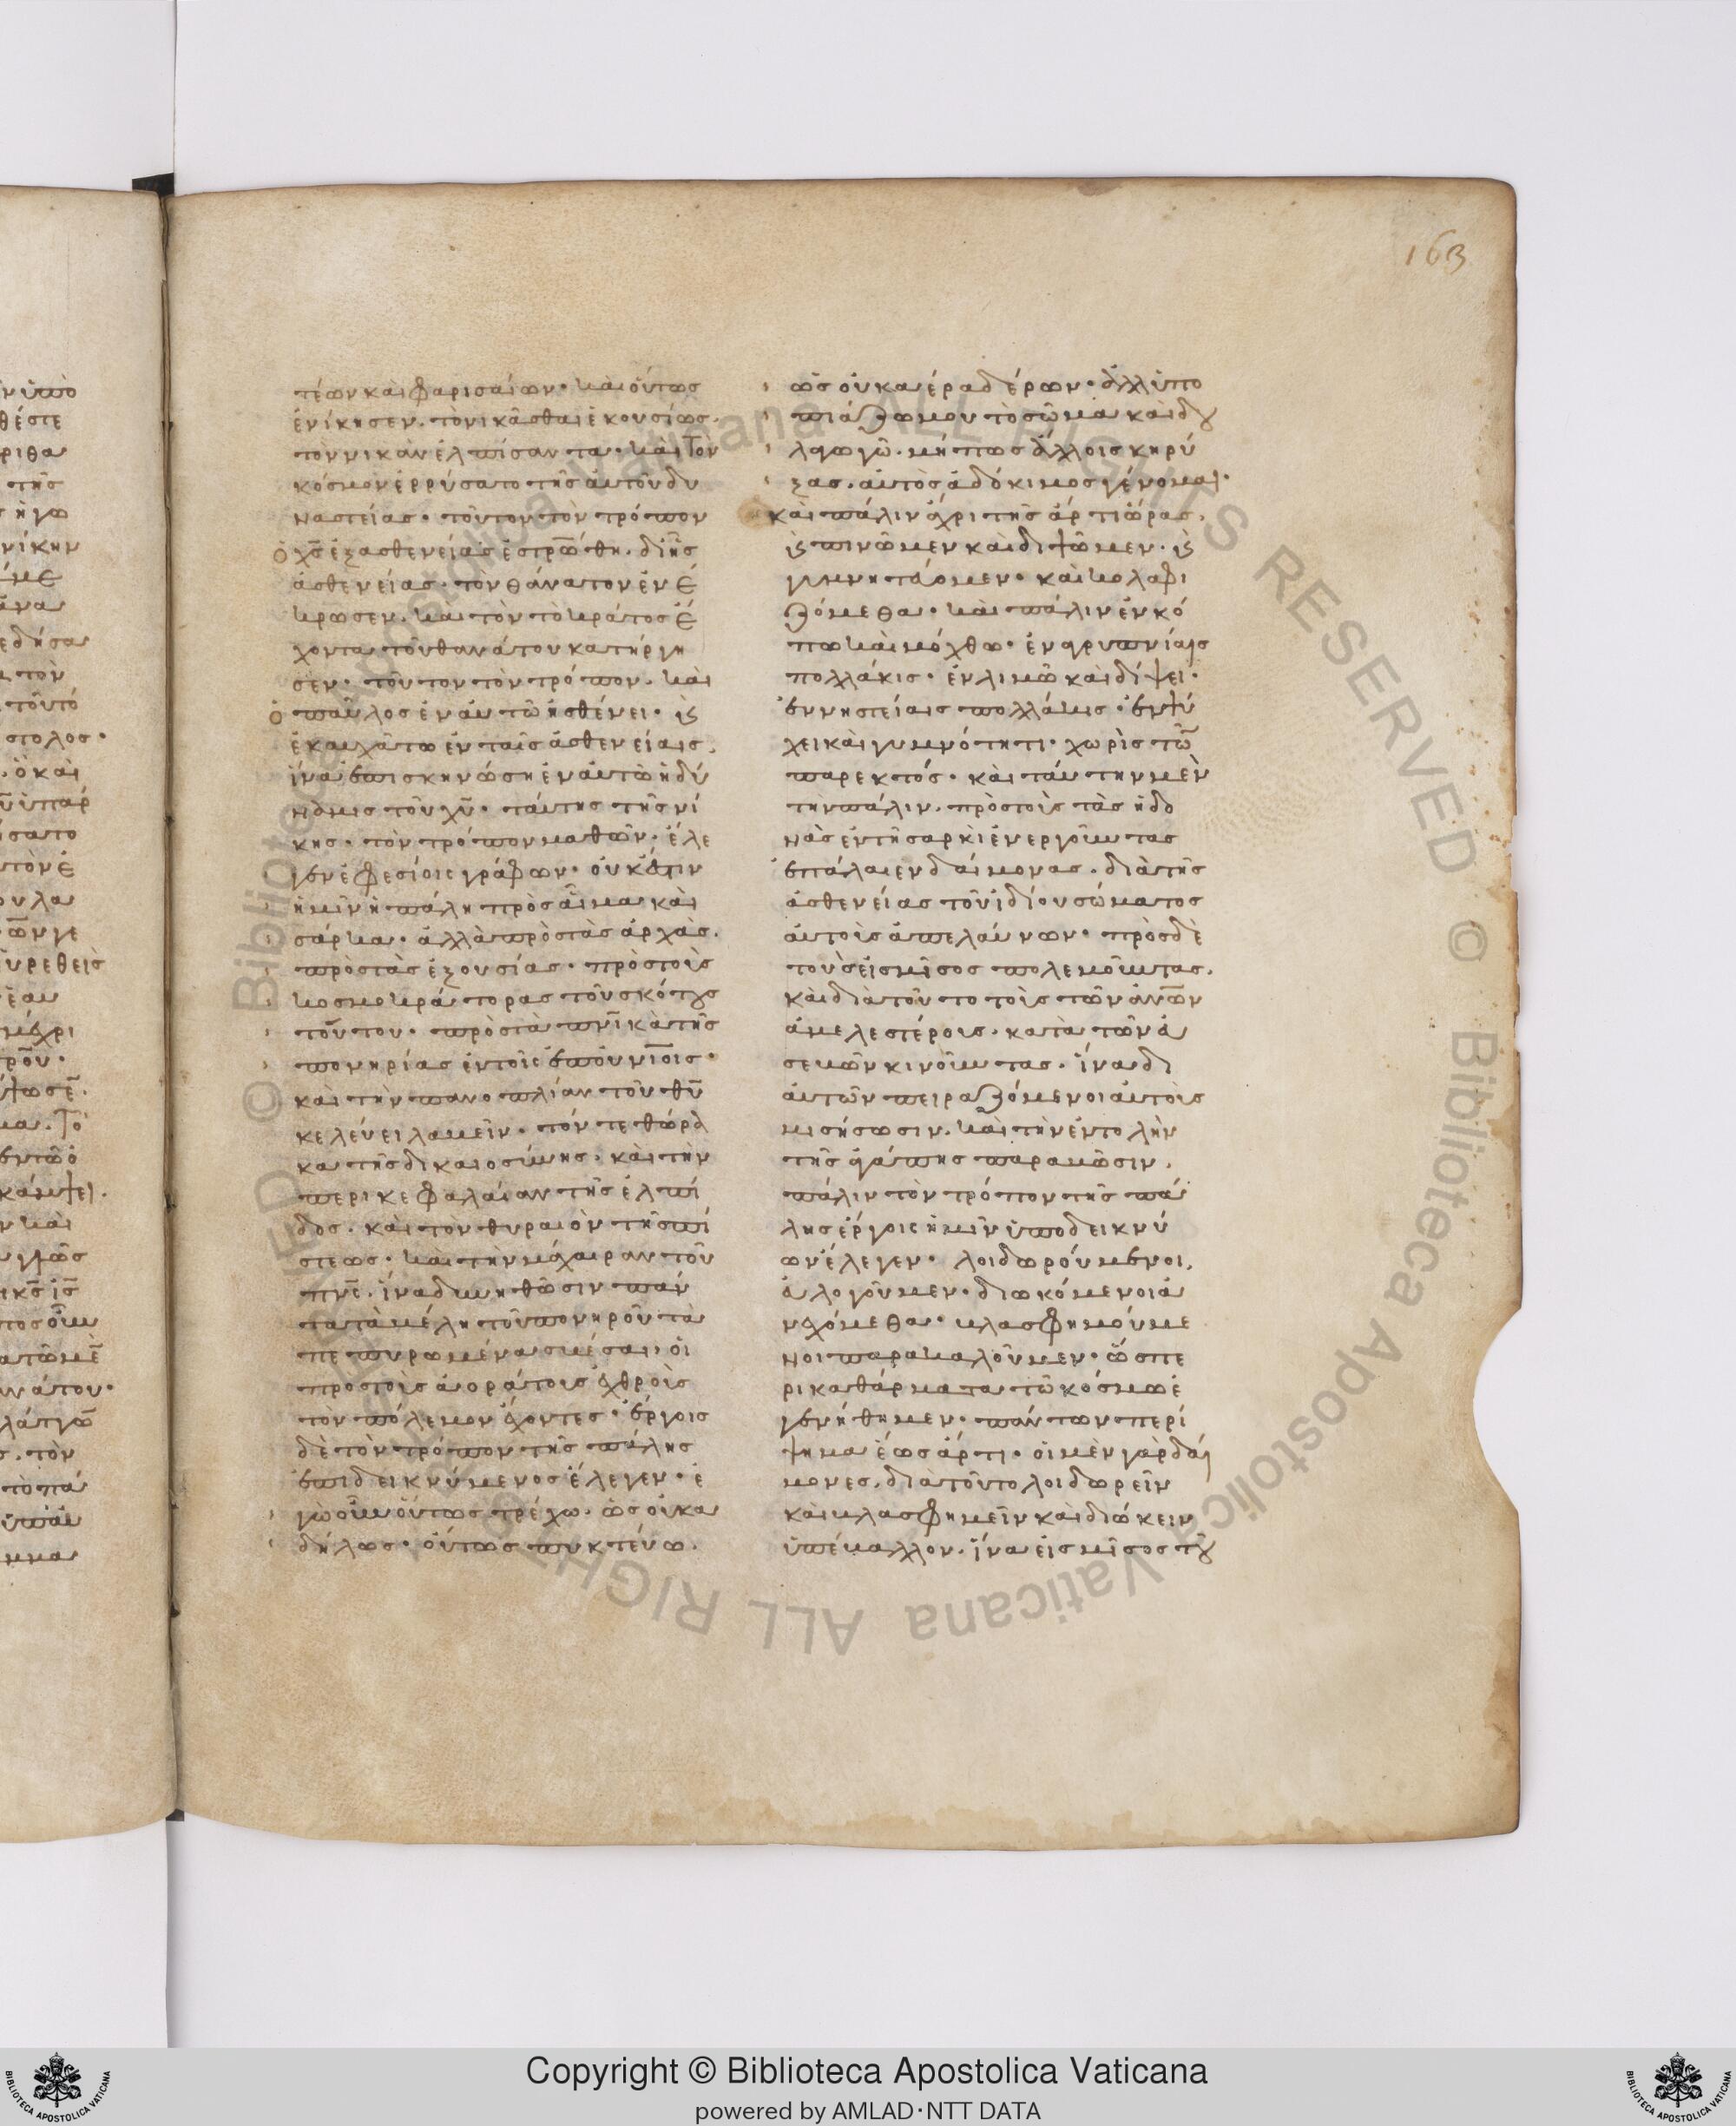 163
τέων καὶ φαρισαίων· καὶ οὕτως
ἐνίκησεν. τὸ νικᾶσθαι ἑκουσίως.
τὸν νικᾶν ἐλπίσαντα· καὶ τὸν
κόσμον ἐρρύσατο τῆς αὐτοῦ δυ
ναστείας· τοῦτον τὸν τρόπον
ὁ χς̅ ἐξ ἀσθενείας ἐστρω̅θη. δι' ἧς
ἀσθενείας· τὸν θάνατον ἐνέ
κρωσεν. καὶ τὸν τὸ κράτος ἔ
χοντα τοῦ θανάτου κατήργη
σεν· τοῦτον τὸν τρόπον. καὶ
ὁ παῦλος ἐν αὐτῶ ἠσθένει· ϗ
ἐκαυχᾶτο ἐν ταῖς ἀσθενείαις.
ἵνα ἐπισκηνώση ἐν αὐτῶ ἡ δύ
ναμις τοῦ χυ̅· ταύτης τῆς νί
κης· τὸν τρόπον μαθὼν· ἔλε
γεν ἐφεσίοις γράφων· οὐκ ἔστιν
ἡμῖν ἡ πάλη πρὸς αἷμα καὶ
σάρκα· ἀλλὰ πρὸς τὰς ἀρχὰς.
πρὸς τὰς ἐξουσίας· πρὸς τοὺς
κοσμοκράτορας τοῦ σκότους
τούτου· πρὸς τὰ πνι̅κὰ τῆς
πονηρίας ἐν τοῖς ἐπουνι̅οις·
καὶ τὴν πανοπλίαν τοῦ θυ̅
κελεύει λαβεῖν· τόν τε θώρα
κα τῆς δικαιοσύνης· καὶ τὴν
περικεφαλαίαν τῆς ἐλπί
δος· καὶ τὸν θυραιὸν τῆς πί
στεως· καὶ τὴν μάχαιραν τοῦ
πνς̅. ἵνα δυνηθῶσιν πάν
τα τὰ βέλη τοῦ πονηροῦ τὰ
πεπυρωμένα σβέσαι· οἱ
πρὸς τοὺς ἀοράτους ἐχθροὺς
τὸν πόλεμον ἔχοντες· ἔργοις
δὲ τὸν τρόπον τῆς πάλης
ἐπιδεικνύμενος ἔλεγεν· ἐ
γὼ οὖν οὕτως τρέχω. ὡς οὐκ ἀ
δήλως· οὕτως πυκτεύω.
ὡς οὐκ ἀέρα δέρων· ἀλλ' ὑπο
πιάζω μου τὸ σῶμα καὶ δου
λαγωγῶ. μήπως ἄλλοις κηρύ
ξας. αὐτὸς ἀδόκιμος γένομαι·
καὶ πάλιν ἄχρι τῆς ἄρτι ὥρας.
ϗ πινῶμεν καὶ διψῶμεν· ϗ
γυμνητεύομεν· καὶ κολαφι
ζόμεθα· καὶ πάλιν ἐν κό
πω καὶ μόχθω· ἐν ἀγρυπνίαις
πολλάκις· ἐν λιμῶ καὶ δίψει·
ἐν νηστείαις πολλάκις· ἐν ψύ
χει καὶ γυμνότητι· χωρὶς τῶν
παρεκτός· καὶ ταύτην μὲν
τὴν πάλιν. πρὸς τοὺς τὰς ἡδο
νὰς ἐν τῆ σαρκὶ ἐνεργοῦντας
ἐπάλαιεν δαίμονας· διὰ τῆς
ἀσθενείας τοῦ ἰδίου σώματος
αὐτοὺς ἀπελαύνων· πρὸς δὲ
τοὺς εἰς μῖσος πολεμοῦντας.
καὶ διὰ τοῦτο τοὺς τῶν ἀνω̅ν
ἀμελεστέρους· κατὰ τῶν εὐ
σεβῶν κινοῦντας· ἵνα δι'
αὐτῶν πειραζόμενοι αὐτοὺς
μισήσωσιν. καὶ τὴν ἐντολὴν
τῆς ἀγάπης παραβῶσιν.
πάλιν τὸν τρόπον τῆς πά
λης ἔργοις ἡμῖν ὑποδεικνύ
ων ἔλεγεν· λοιδωρούμενοι.
εὐλογοῦμεν· διωκόμενοι ἀ
νεχόμεθα· βλασφημούμε
νοι παρακαλοῦμεν· ὥσπε
ρικαθάρματα τῶ κόσμω ἐ
γενήθημεν· πάντων περί
ψημα ἕως ἄρτι· οἱ μὲν γὰρ δαί
μονες. διὰ τοῦτο λοιδωρεῖν
καὶ βλασφημεῖν καὶ διώκειν
ὑπέβαλλον. ἵνα εἰς μῖσος τοῦ
Copyright © Biblioteca Apostolica Vaticana
powered by AMLAD·NTT DATA